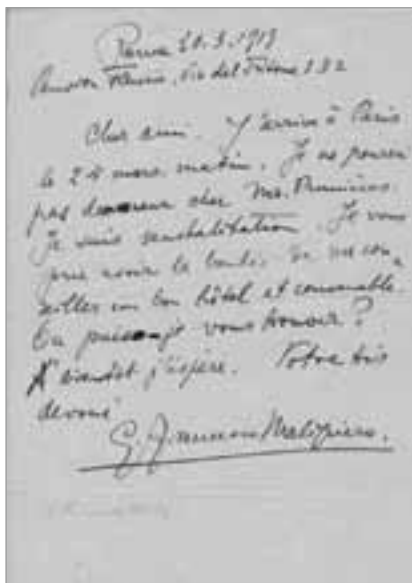 Roma 20.3.1913
Pension Francini, Via del Tritone 132
Cher ami. J'arrive à Paris
le 24 mars matin. Je ne pourrai
pas demeurer chez Mr. Prunières.
Je suis sans habitation. Je vous
prie avoir la bonté de me con-
seiller un bon hôtel et convenable.
Où puis-je vous trouver?
A bientôt j'espère. Votre très
dévoué
G. Francesco Malipiero.